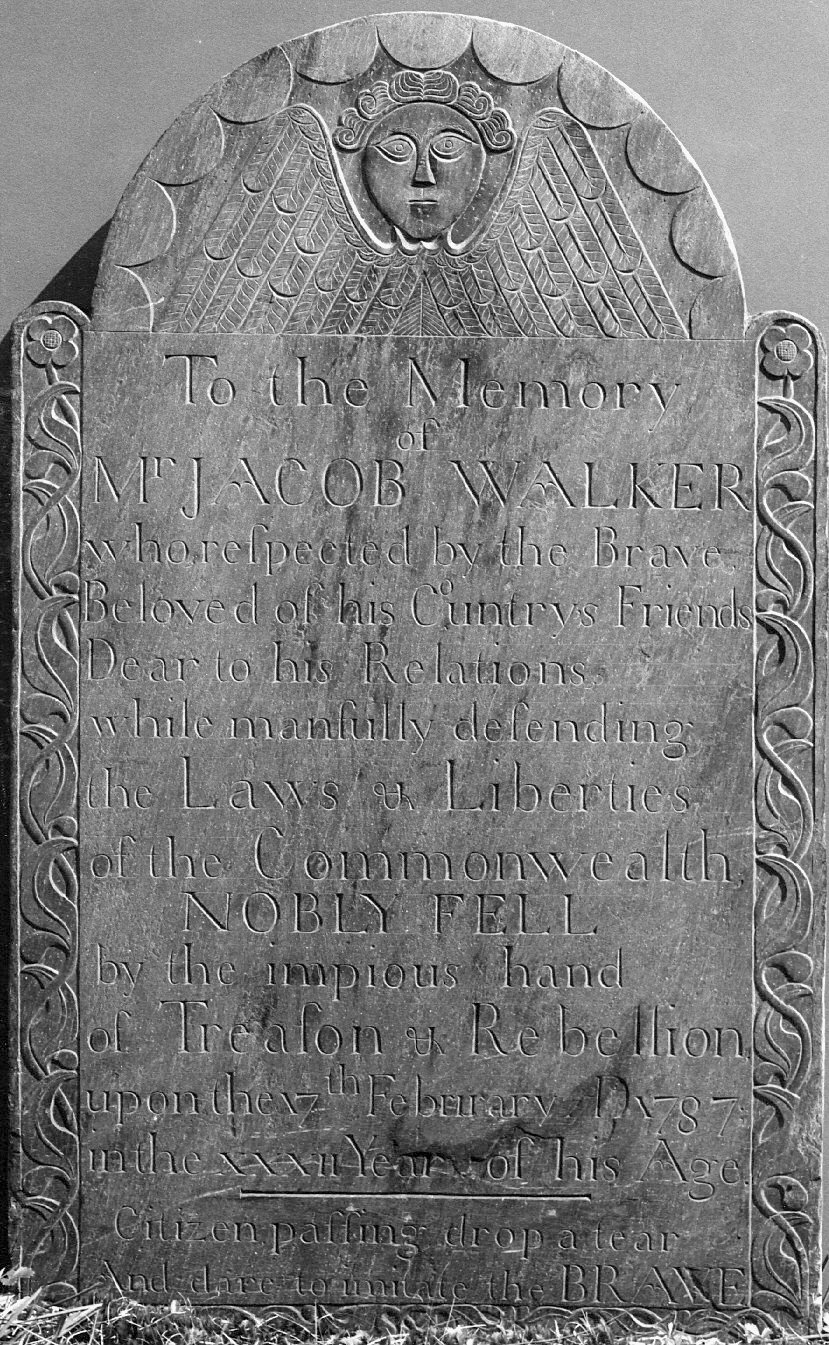 To the Memory
of
Mr JACOB WALKER
who, reſpected by the Brave,
Beloved of his Coůntrys Friends
Dear to his Relations,
while manfully defending
the Laws & Liberties
of the Commonwealth,
NOBLY FELL
by the impious hand
of Treaſon & Rebellion
upon the 17th Februrary, D 1787:
in the XXXII Year of his Age.
Citizen paſſing drop a tear
And dare to imitate the BRAVE